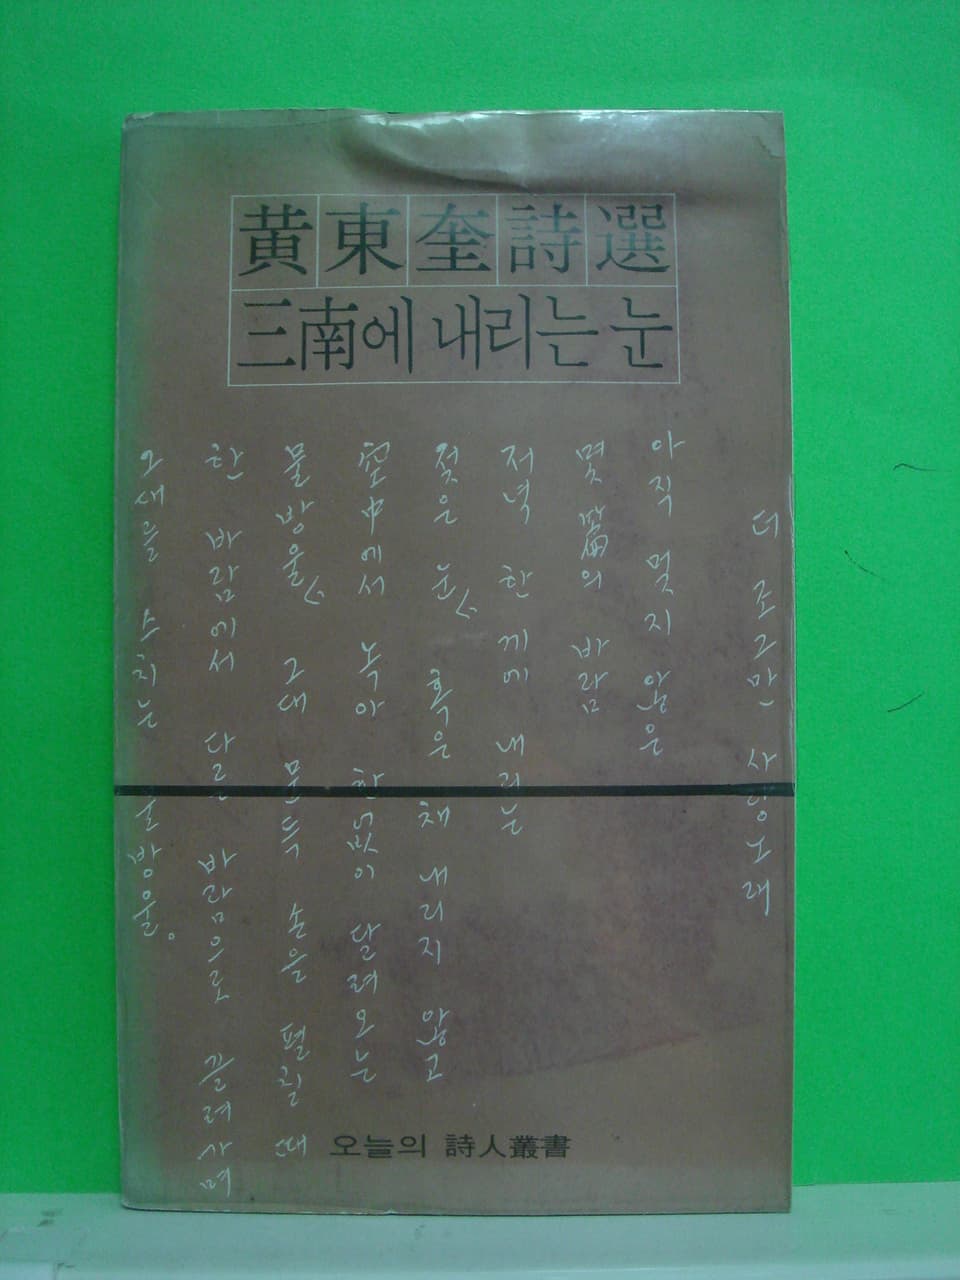 黃東奎詩選
三南에 내리는 눈
더 조그만 사랑노래
아직 멎지 않은
몇 篇의 바람
저녁 한끼에 내리는
젖은 눈, 혹은 채 내리지 않고
空中에서 녹아 한없이 달려오는
물방울, 그대 문득 손을 펼칠 때
한 바람에서 다른 바람으로 끌려가며
오새를 스치는 물방울。
오늘의 詩人叢書